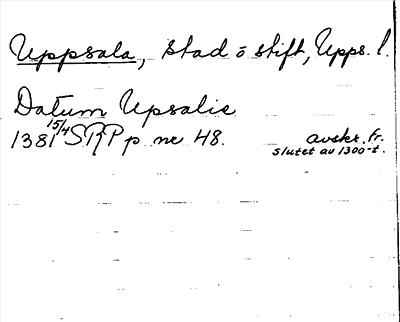 Uppsala, stad o stift, Upps. l.
Datum Upsalie
1381 15/4 SRP p nr 48. avskr. fr.
slutet av 1300-t.